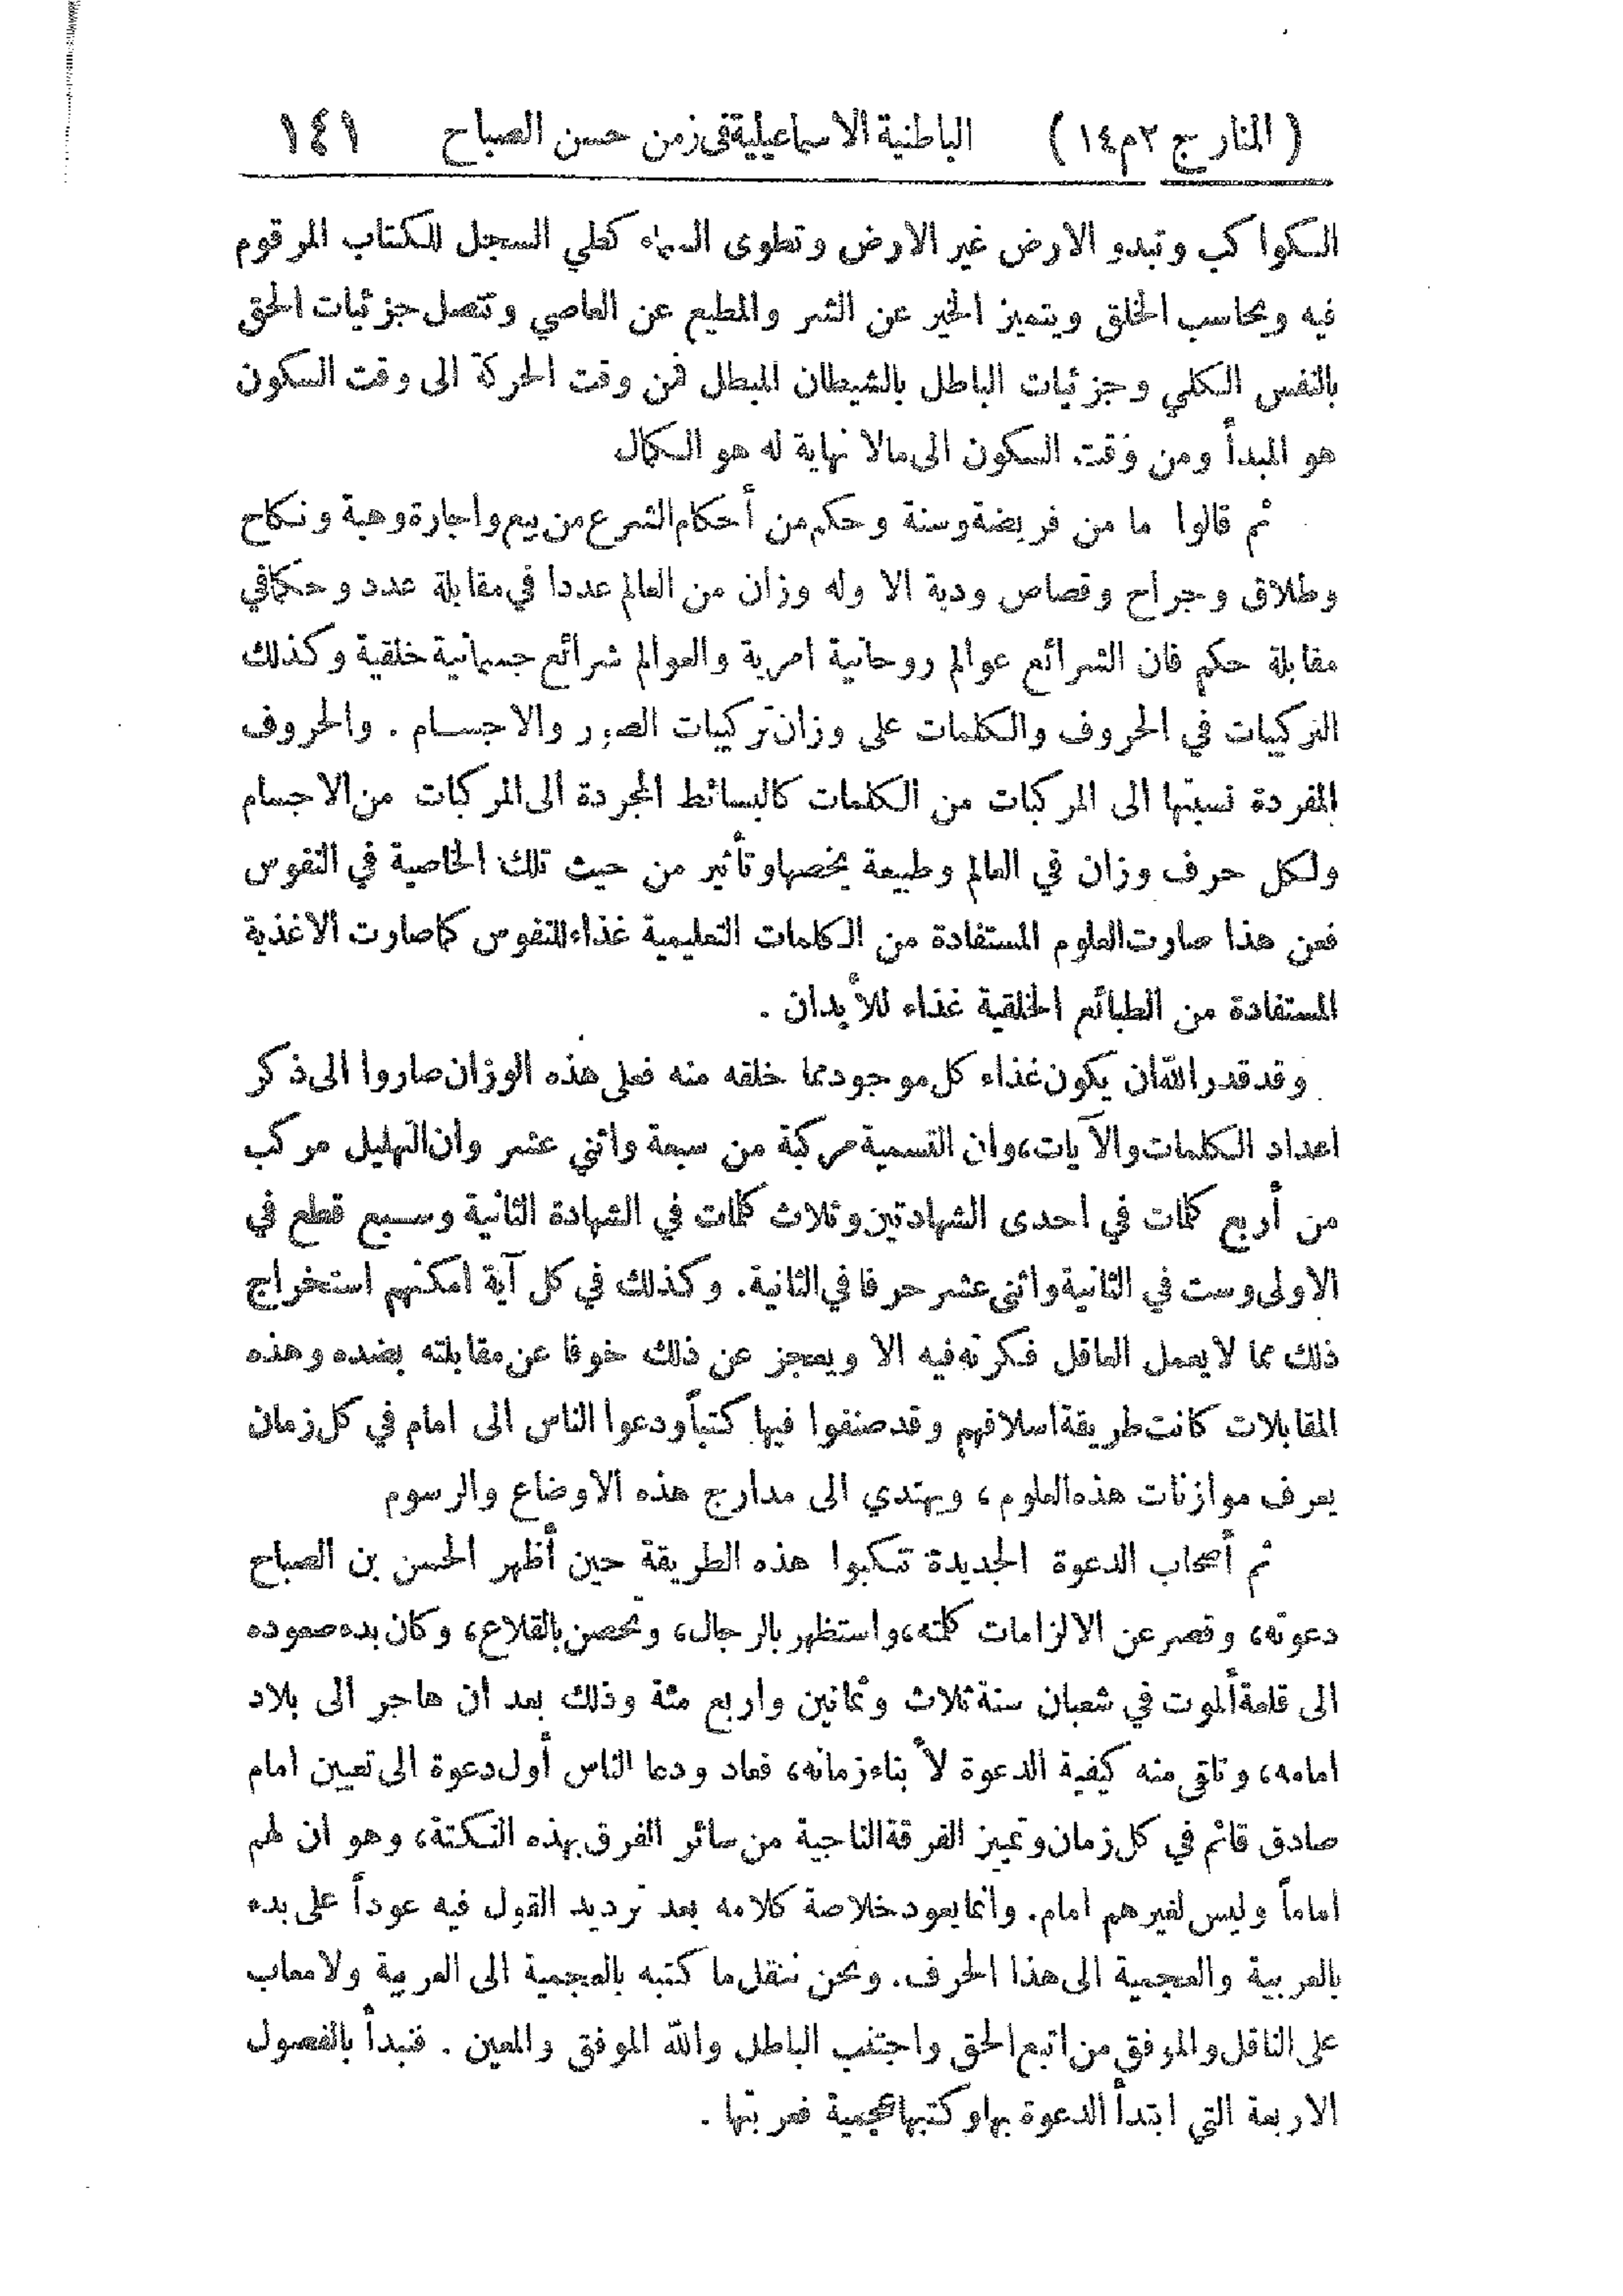 ( المنار ج ٢ م ١٤ ) الباطنية الاسماعيلية في زمن حسن الصباح ١٤١
الكواكب وتبدو الارض غير الارض وتطوى السماء كطي السجل للكتاب المرقوم
فيه ويحاسب الخلق ويتميز الخير عن الشر والمطيع عن العاصي وتتصل جزئيات الحق
بالنفس الكلي وجزئيات الباطل بالشيطان المبطل فمن وقت الحركة الى وقت السكون
هو المبدأ ومن وقت السكون الى مالا نهاية له هو الكمال
ثم قالوا ما من فريضة وسنة وحكم من أحكام الشرع من بيع واجارة وهبة ونكاح
وطلاق وجراح وقصاص ودية الا وله وزان من العالم عددا في مقابلة عدد وحكما في
مقابلة حكم فان الشرائع عوالم روحانية امرية والعوالم شرائع جسمانية خلقية وكذلك
التركيبات في الحروف والكلمات على وزان تركيبات الصور والاجسام . والحروف
المفردة نسبتها الى المركبات من الكلمات كالبسائط المجردة الى المركبات من الاجسام
ولكل حرف وزان في العالم وطبيعة يخصها وتأثير من حيث تلك الخاصية في النفوس
فعن هذا صارت العلوم المستفادة من الكلمات التعليمية غذاء للنفوس كما صارت الاغذية
المستفادة من الطبائع الخلقية غذاء للأبدان .
وقد قدر الله ان يكون غذاء كل موجود مما خلقه منه فعلى هذه الوزان صاروا الى ذكر
اعداد الكلمات والآيات، وان التسمية مركبة من سبعة واثني عشر وان التهليل مركب
من أربع كلمات في احدى الشهادتين وثلاث كلمات في الشهادة الثانية وسبع قطع في
الاولى وست في الثانية واثنى عشر حرفا في الثانية. وكذلك في كل آية امكنهم استخراج
ذلك مما لا يعمل العاقل فكرته فيه الا ويعجز عن ذلك خوفا عن مقابلته بضده وهذه
المقابلات كانت طريقة اسلافهم وقد صنفوا فيها كتباً ودعوا الناس الى امام في كل زمان
يعرف موازنات هذه العلوم ، ويهتدي الى مدارج هذه الاوضاع والرسوم
ثم أصحاب الدعوة الجديدة تنكبوا هذه الطريقة حين أظهر الحسن بن الصباح
دعوته، وقصر عن الالزامات كلمته، واستظهر بالرجال، وتحصن بالقلاع، وكان بدء صعوده
الى قلعة ألموت في شعبان سنة ثلاث وثمانين واربع مئة وذلك بعد ان هاجر الى بلاد
امامه، وتلقى منه كيفية الدعوة لأبناء زمانه، فعاد ودعا الناس أول دعوة الى تعيين امام
صادق قائم في كل زمان وتمييز الفرقة الناجية من سائر الفرق بهذه النكتة، وهو ان لهم
اماماً وليس لغيرهم امام. وانما يعود خلاصة كلامه بعد ترديد القول فيه عوداً على بدء
بالعربية والعجمية الى هذا الحرف. ونحن ننقل ما كتبه بالعجمية الى العربية ولا معاب
على الناقل والموفق من اتبع الحق واجتنب الباطل والله الموفق والمعين . فنبدأ بالفصول
الاربعة التي ابتدأ الدعوة بها وكتبها عجمية فعربتها .